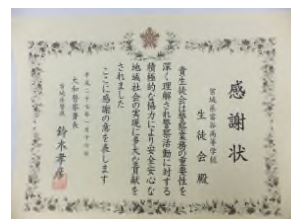 感謝状
宮城県富谷高等学校
生徒会殿
貴生徒会は警察業務の重要性を
深く理解され警察活動に対する
積極的な協力により安全安心な
地域社会の実現に多大な貢献を
されました
ここに感謝の意を表します
平成二十七年一月十六日
大和警察署長
宮城県警視 鈴木孝彦